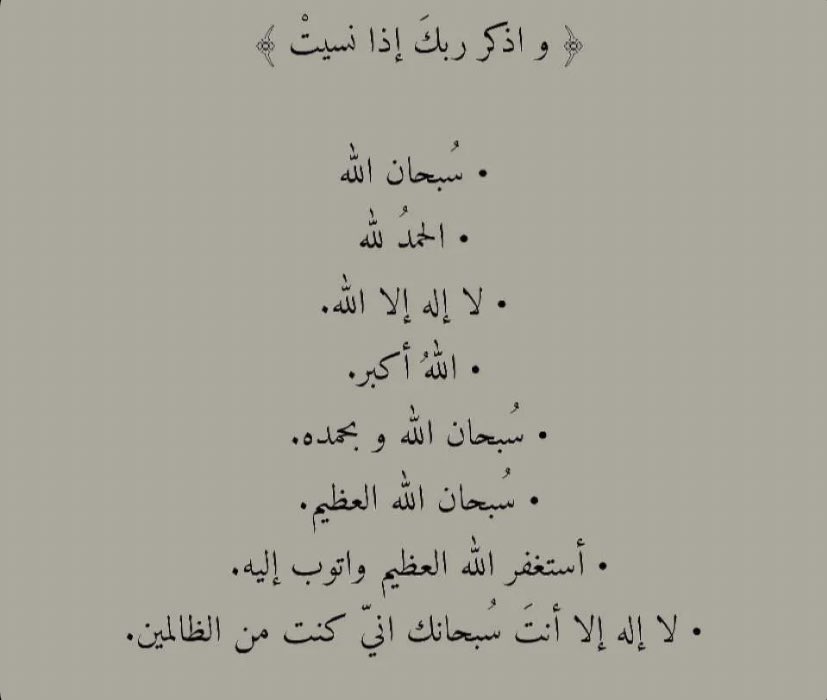 ﴿ و اذكر ربكَ إذا نسيتْ ﴾
• سُبحان الله
• الحمدُ لله
• لا إله إلا الله.
• اللهُ أكبر.
• سُبحان الله و بحمده.
• سُبحان الله العظيم.
• أستغفر الله العظيم واتوب إليه.
• لا إله إلا أنتَ سُبحانك انيّ كنت من الظالمين.